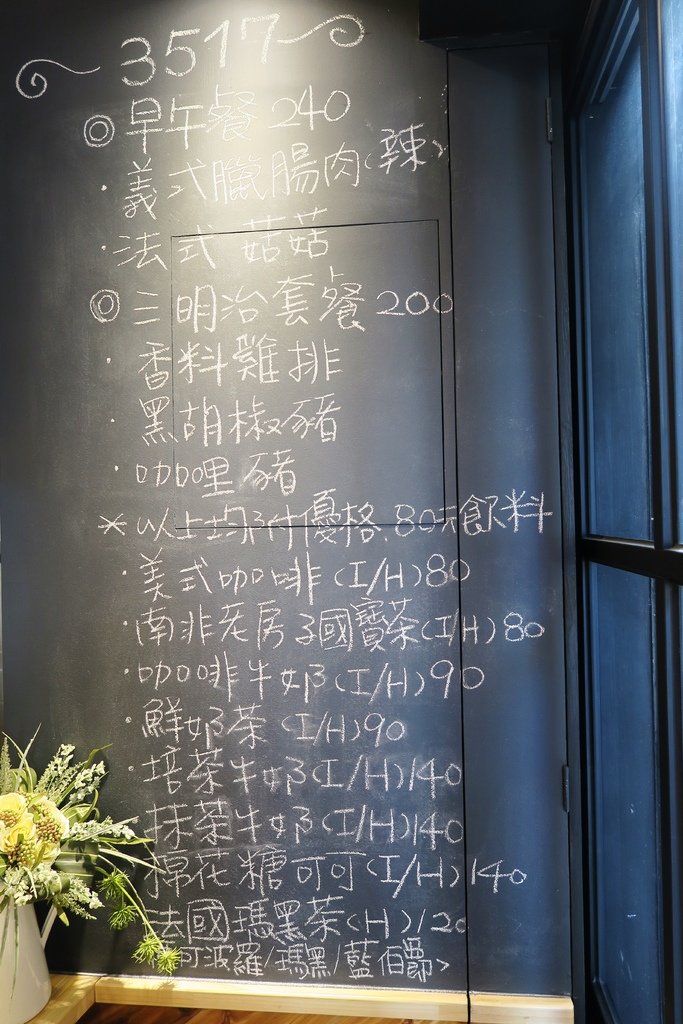 3517
◎早午餐 240
·義式臘腸肉(辣)
·法式菇菇
◎三明治套餐 200
·香料雞排
·黑胡椒豬
·咖哩豬
*以上均附優格.80元飲料
·美式咖啡(I/H)80
·南非老房子國寶茶(I/H)80
·咖啡牛奶(I/H)90
·鮮奶茶(I/H)90
·培茶牛奶(I/H)140
抹茶牛奶(I/H)140
棉花糖可可(I/H)140
法國瑪黑茶(H)120
阿波羅/瑪黑/藍伯爵>